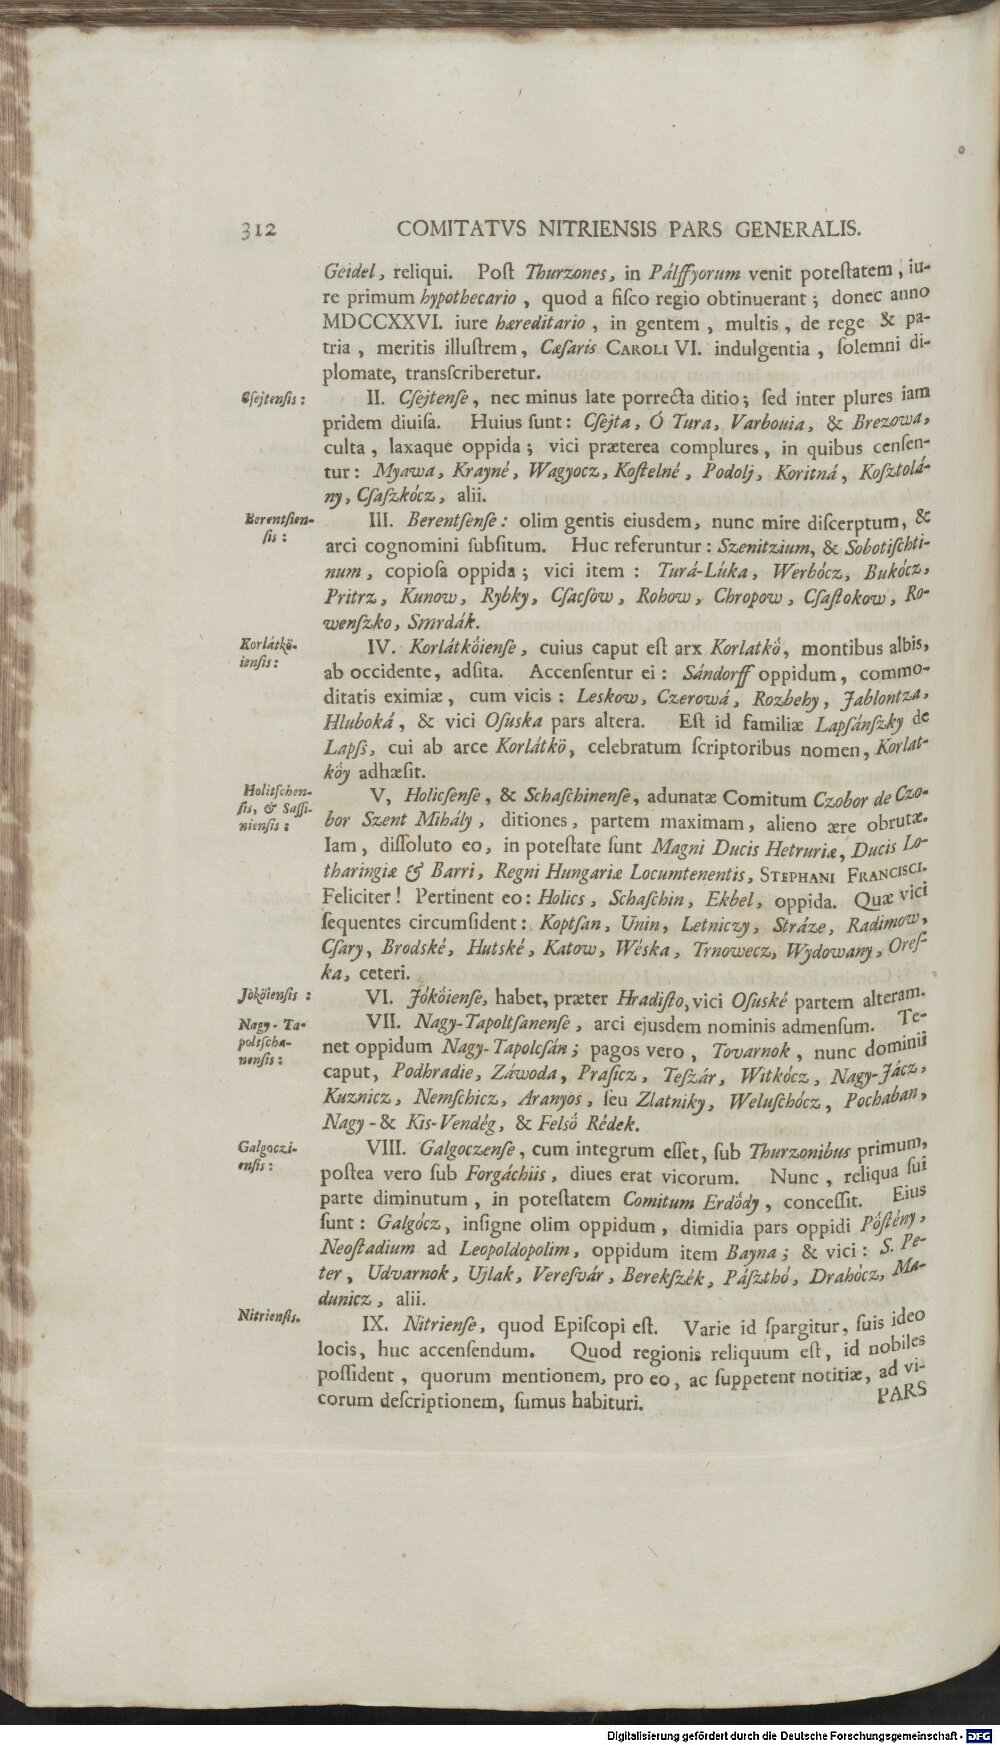 312 COMITATVS NITRIENSIS PARS GENERALIS.
Geidel, reliqui. Poſt Thurzones, in Pálffyorum venit poteſtatem, iu-
re primum hypothecario, quod a fiſco regio obtinuerant; donec anno
MDCCXXVI. iure hæreditario, in gentem, multis, de rege & pa-
tria, meritis illuſtrem, Cæſaris CAROLI VI. indulgentia, ſolemni di-
plomate, transſcriberetur.
Cſejtenſis:
II. Cſejtenſe, nec minus late porrecta ditio; ſed inter plures iam
pridem diuiſa. Huius ſunt: Cſejta, Ó Tura, Varbouia, & Brezowa,
culta, laxaque oppida; vici præterea complures, in quibus cenſen-
tur: Myawa, Krayné, Wagyocz, Koſtelné, Podolj, Koritná, Koſztolá-
ny, Cſaſzkócz, alii.
Berentſien-
ſis:
III. Berentſenſe: olim gentis eiusdem, nunc mire diſcerptum, &
arci cognomini ſubſitum. Huc referuntur: Szenitzium, & Sobotiſchti-
num, copioſa oppida; vici item: Turá-Lúka, Werbócz, Bukócz,
Pritrz, Kunow, Rybky, Cſacſow, Rohow, Chropow, Cſaſtokow, Ro-
wenſzko, Smrdák.
Korlátkö-
ienſis:
IV. Korlátköienſe, cuius caput eſt arx Korlatkö, montibus albis,
ab occidente, adſita. Accenſentur ei: Sándorff oppidum, commo-
ditatis eximiæ, cum vicis: Leskow, Czerowá, Rozbehy, Jablontza,
Hluboká, & vici Oſuska pars altera. Eſt id familiæ Lapſánſzky de
Lapſs, cui ab arce Korlátkö, celebratum ſcriptoribus nomen, Korlat-
köy adhæſit.
Holitſchen-
ſis, & Saſſi-
nienſis:
V, Holicſenſe, & Schaſchinenſe, adunatæ Comitum Czobor de Czo-
bor Szent Mihály, ditiones, partem maximam, alieno ære obrutæ.
Iam, diſſoluto eo, in poteſtate ſunt Magni Ducis Hetruriæ, Ducis Lo-
tharingiæ & Barri, Regni Hungariæ Locumtenentis, STEPHANI FRANCISCI.
Feliciter! Pertinent eo: Holics, Schaſchin, Ekbel, oppida. Quæ vici
ſequentes circumſident: Koptſan, Unin, Letniczy, Stráze, Radimow,
Cſary, Brodské, Hutské, Katow, Wéska, Trnowecz, Wydowany, Oreſ-
ka, ceteri.
Jóköienſis:
VI. Jóköienſe, habet, præter Hradiſto, vici Oſuské partem alteram.
Nagy-Ta-
poltſcha-
nenſis:
VII. Nagy-Tapoltſanenſe, arci ejusdem nominis admenſum. Te-
net oppidum Nagy-Tapolcſán; pagos vero, Tovarnok, nunc dominii
caput, Podhradie, Záwoda, Praſicz, Teſzár, Witkócz, Nagy-Jácz,
Kuznicz, Nemſchicz, Aranyos, ſeu Zlatniky, Weluſchócz, Pochaban,
Nagy-& Kis-Vendég, & Felsö Rédek.
Galgoczi-
enſis:
VIII. Galgoczenſe, cum integrum eſſet, ſub Thurzonibus primum,
poſtea vero ſub Forgáchiis, diues erat vicorum. Nunc, reliqua ſui
parte diminutum, in poteſtatem Comitum Erdödy, conceſſit. Eius
ſunt: Galgócz, inſigne olim oppidum, dimidia pars oppidi Pöſtény,
Neoſtadium ad Leopoldopolim, oppidum item Bayna; & vici: S. Pe-
ter, Udvarnok, Ujlak, Vereſvár, Berekſzék, Páſzthó, Drahócz, Ma-
dunicz, alii.
Nitrienſis.
IX. Nitrienſe, quod Epiſcopi eſt. Varie id ſpargitur, ſuis ideo
locis, huc accenſendum. Quod regionis reliquum eſt, id nobiles
poſſident, quorum mentionem, pro eo, ac ſuppetent notitiæ, ad vi-
corum deſcriptionem, ſumus habituri.
PARS
Digitalisierung gefördert durch die Deutsche Forschungsgemeinschaft - DFG